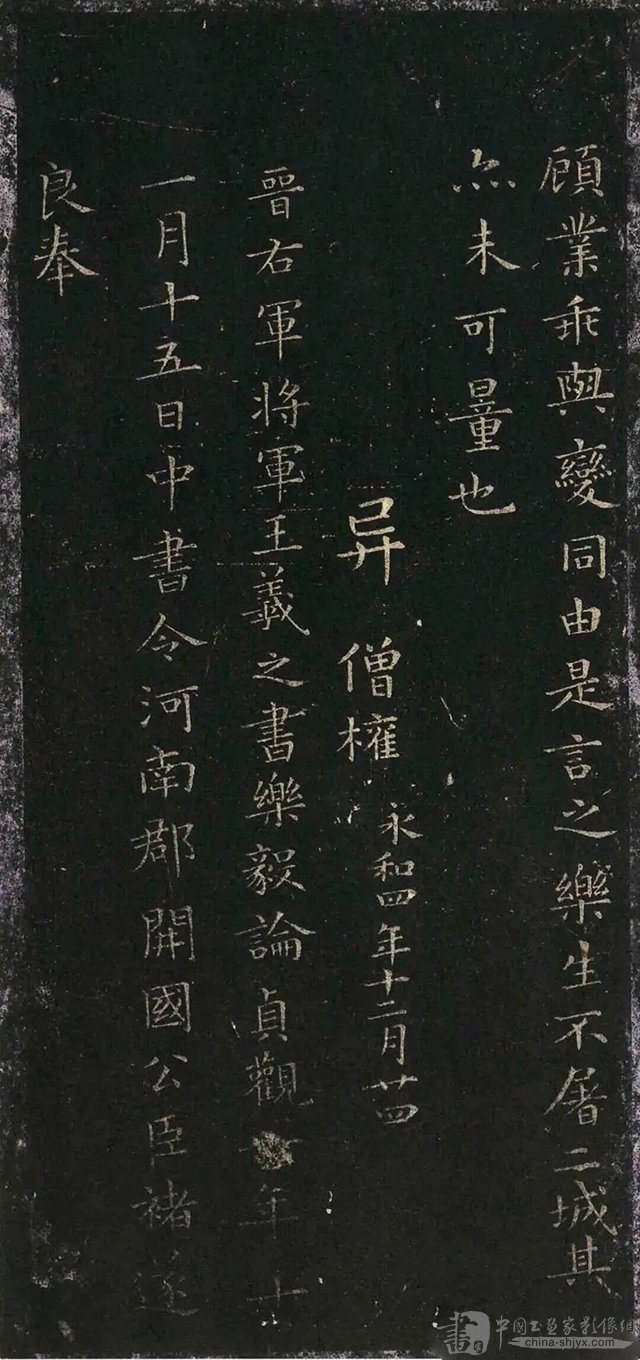 顧業乖與變同由是言之樂生不屠二城其
亦未可量也
异 僧權
永和四年十二月廿四
晉右軍將軍王羲之書樂毅論貞觀年十
一月十五日中書令河南郡開國公臣褚遂
良奉
中国书画家影像網
china-shjyx.com